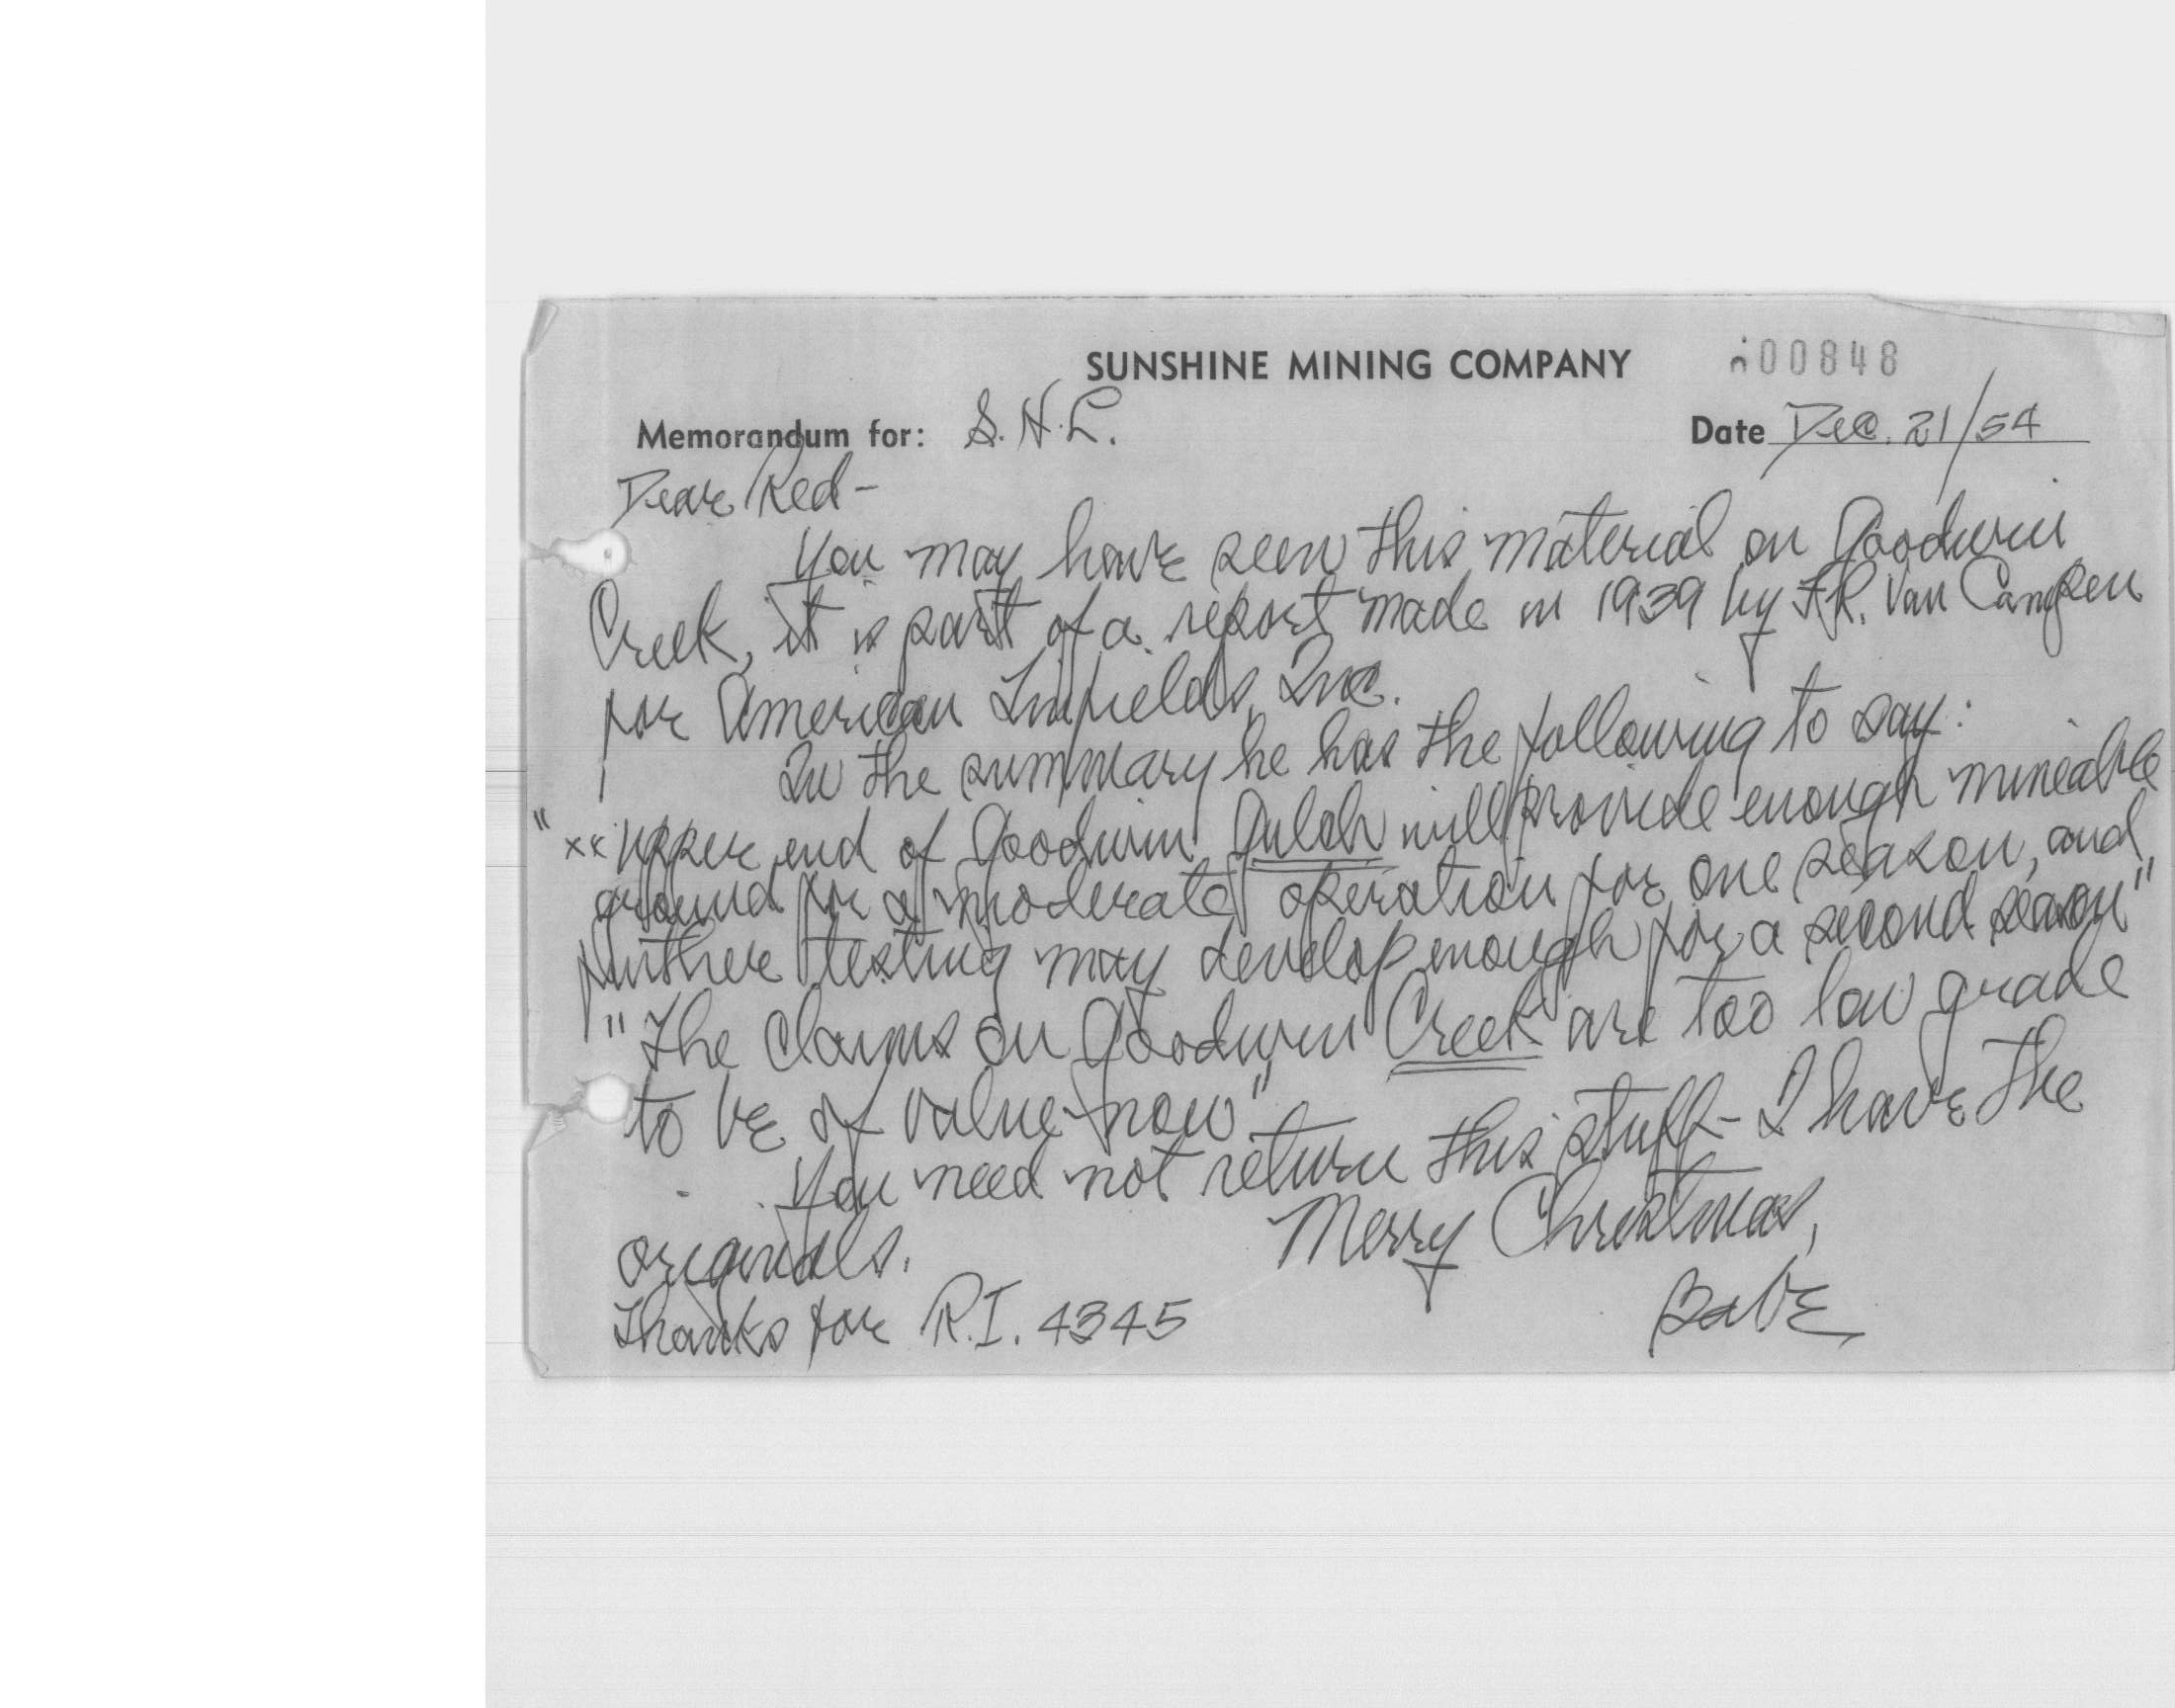 SUNSHINE MINING COMPANY 00848
Memorandum for: S.H.L. Date Dec. 21/54
Dear Red-
You may have seen this material on Goodwin
Creek, it is part of a report made in 1939 by F.R. Van Campen
for American Tinfields, Inc.
In the summary he has the following to say:
"xx upper end of Goodwin Gulch will provide enough mineable
ground for a moderate operation for one season, and
further testing may develop enough for a second season"
"The claims on Goodwin Creek are too low grade
to be of value now"
You need not return this stuff - I have the
originals.
Merry Christmas,
Thanks for R.I. 4345
Babe